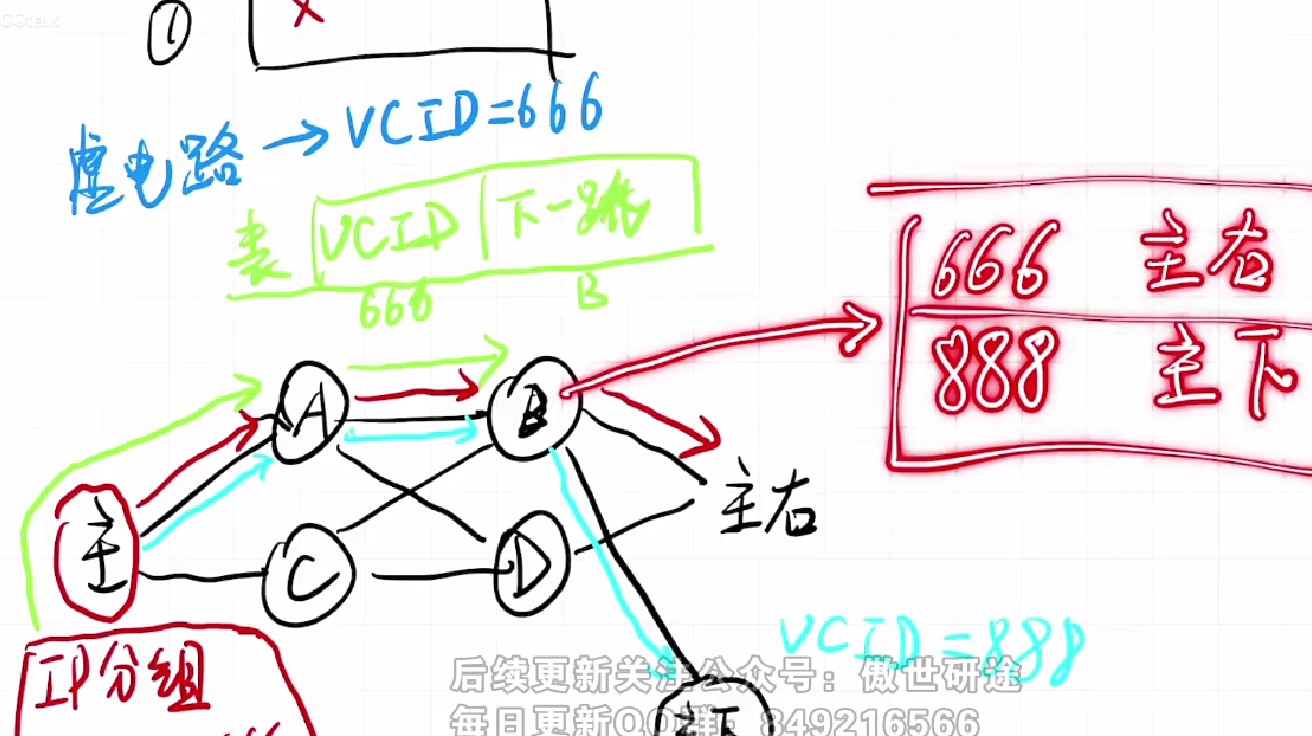 GGtalk
①
虚电路 → VCID=666
表 VCID 下一跳
666 B
666 主右
888 主下
A
B
主
主右
C
D
VCID=888
IP分组
后续更新关注公众号：傲世研途
主下
每日更新QQ群：849216566
666